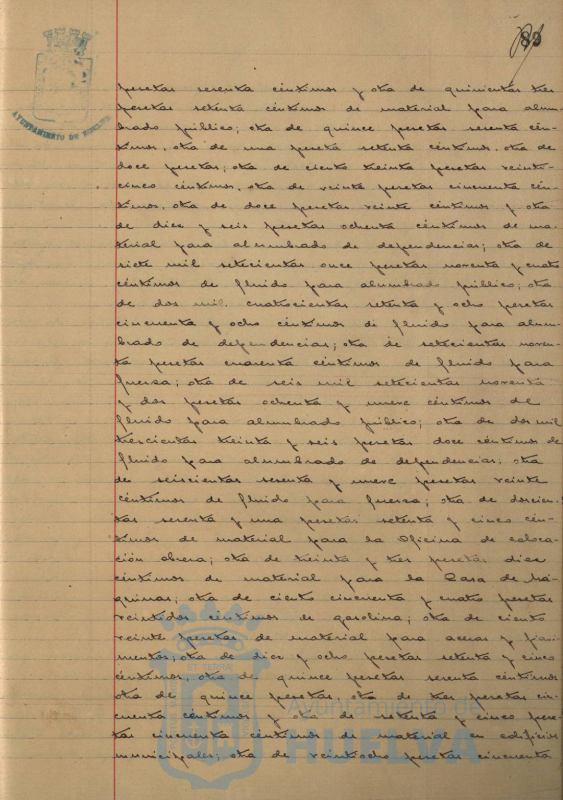 83
AYUNTAMIENTO DE HUELVA
pesetas sesenta céntimos y otra de quinientas tres
pesetas setenta céntimos de material para alum-
brado público; otra de quince pesetas sesenta cén-
timos, otra de una peseta setenta céntimos, otra de
doce pesetas; otra de ciento treinta pesetas veinti-
cinco céntimos, otra de veinte pesetas cincuenta cén-
timos, otra de doce pesetas veinte céntimos y otra
de diez y seis pesetas ochenta céntimos de ma-
terial para alumbrado de dependencias; otra de
siete mil setecientas once pesetas noventa y cuatro
céntimos de fluido para alumbrado público; otra
de dos mil cuatrocientas setenta y ocho pesetas
cincuenta y ocho céntimos de fluido para alum-
brado de dependencias; otra de setecientas noven-
ta pesetas cuarenta céntimos de fluido para
fuerza; otra de seis mil setecientas noventa
y dos pesetas ochenta y nueve céntimos de
fluido para alumbrado público; otra de dos mil
trescientas treinta y seis pesetas doce céntimos de
fluido para alumbrado de dependencias; otra
de seiscientas sesenta y nueve pesetas veinte
céntimos de fluido para fuerza; otra de doscien-
tas sesenta y una pesetas setenta y cinco cén-
timos de material para la Oficina de coloca-
ción obrera; otra de treinta y tres pesetas diez
céntimos de material para la Casa de Má-
quinas; otra de ciento cincuenta y cuatro pesetas
veintidos céntimos de gasolina; otra de ciento
veinte pesetas de material para aceras y pavi-
mentos; otra de diez y ocho pesetas setenta y cinco
céntimos, otra de quince pesetas sesenta céntimos
otra de quince pesetas, otra de tres pesetas cin-
cuenta céntimos y otra de setenta y cinco pese-
tas cincuenta céntimos de material en edificios
municipales; otra de veintiocho pesetas cincuenta
Ayuntamiento de
HUELVA